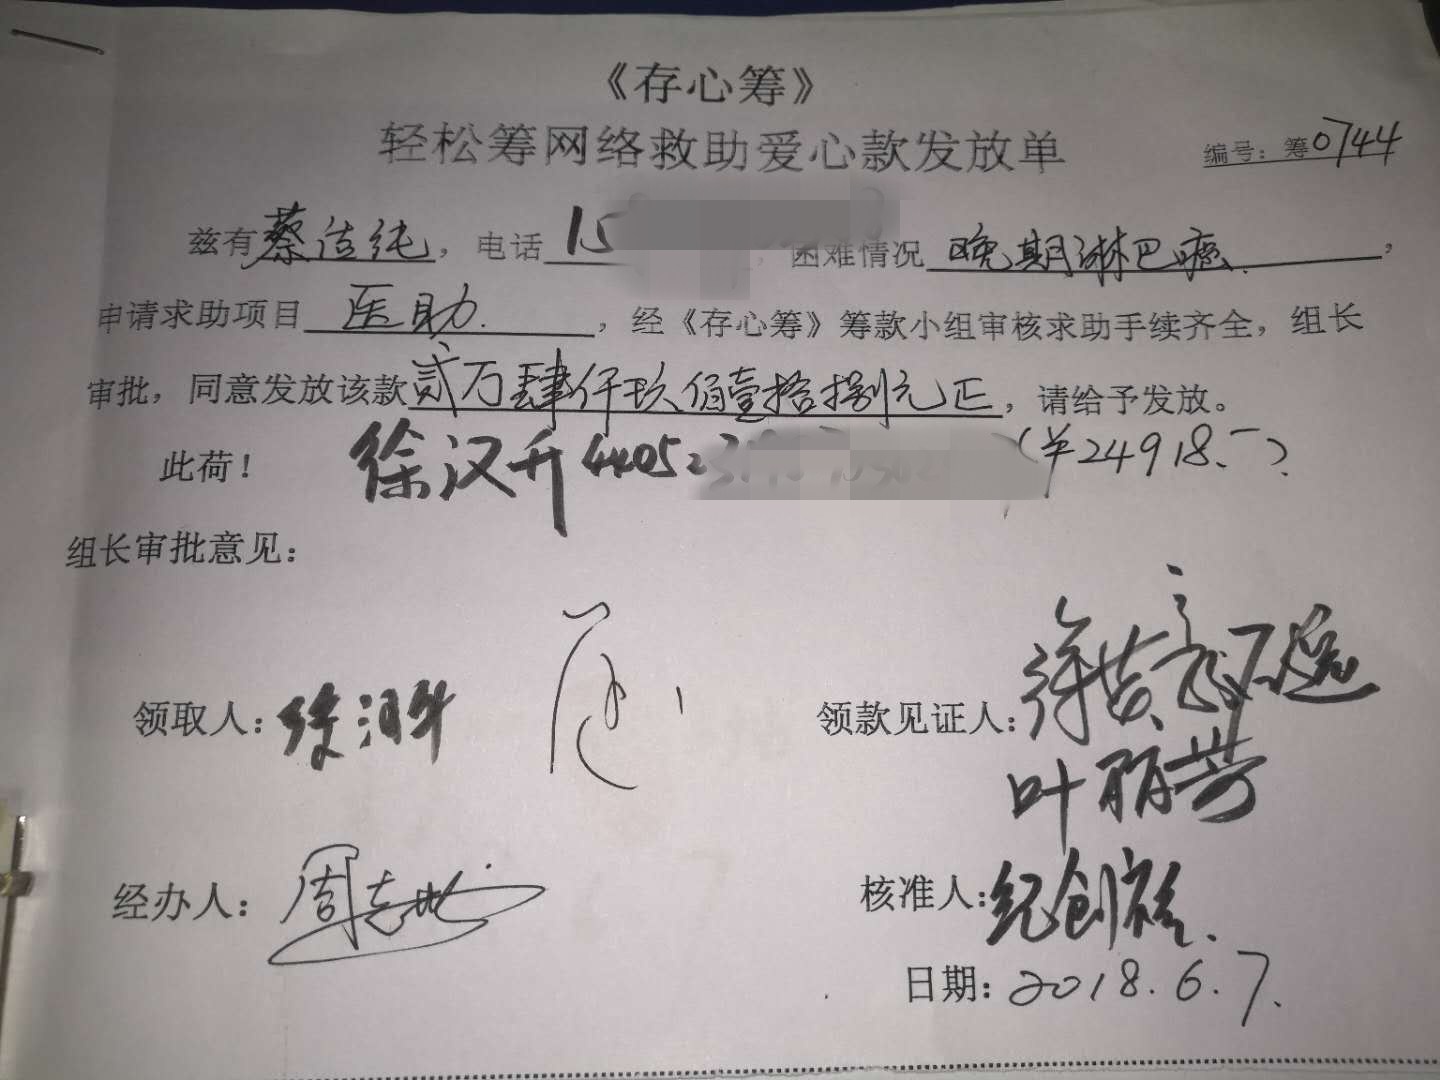 《存心筹》
轻松筹网络救助爱心款发放单
编号：筹0744
兹有蔡洁纯，电话15 ，困难情况晚期淋巴癌.，
申请求助项目医助.，经《存心筹》筹款小组审核求助手续齐全，组长
审批，同意发放该款贰万肆仟玖佰壹拾捌元正，请给予发放。
此荷！ 徐汉升 44052 (￥24918.一)
组长审批意见：
领取人：徐汉升
领款见证人：
叶丽芳
经办人：周
核准人：纪创
日期：2018.6.7.